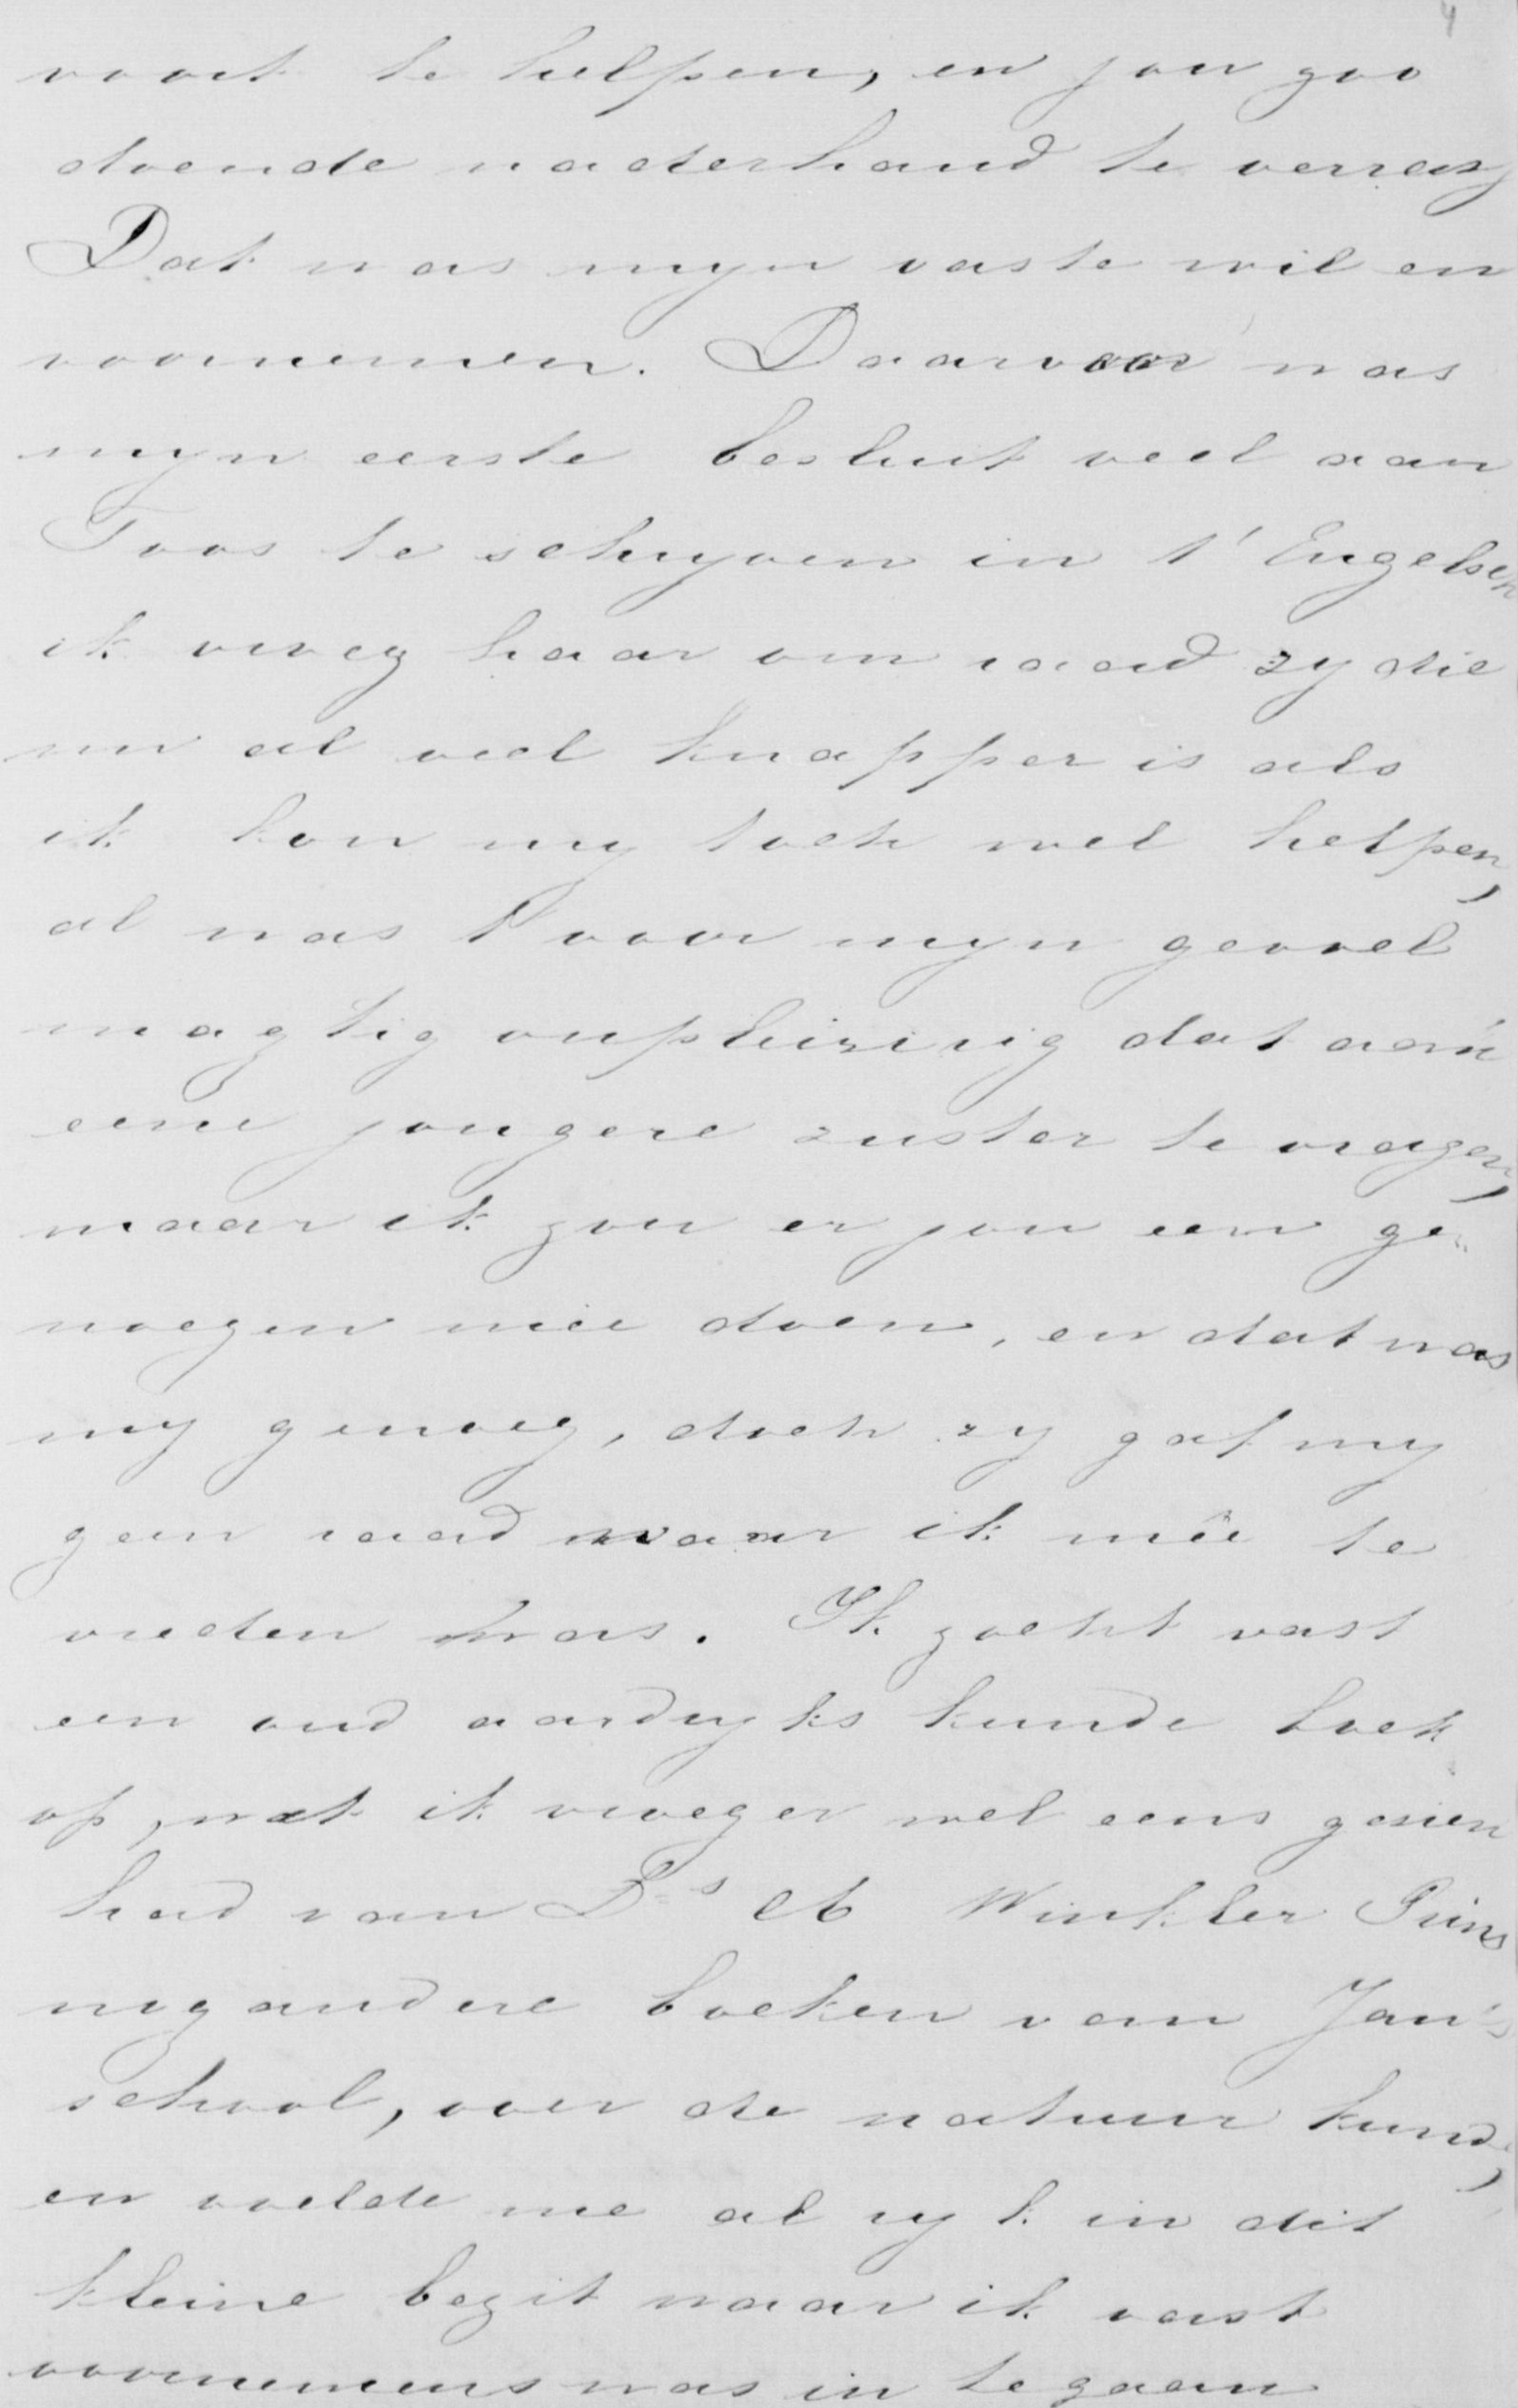 4
voort te helpen, en jou zoo
doende naderhand te verras
Dat was myn vaste wil en
voornemen. Daarvoor was
myn eerste besluit veel aan
Toos te schryven in t' Engelsch
ik vroeg haar om raad zy die
nu al veel knapper is als
ik kon my toch wel helpen,
al was 't voor myn gevoel
magtig onpleizirig dat aan
eene jongere zuster te vragen,
maar ik zou er jou een ge„
noegen meê doen, en dat was
my genoeg, doch zy gaf my
geen raad waar ik meê te
vreden was. Ik zocht vast
een oud aardryks kunde boek
op, wat ik vroeger wel eens gezien
had van Ds A Winkler Prins
nog andere boeken van Jan's
school, over de natuur kunde,
en voelde me al ryk in dit
kleine bezit waar ik vast
voornemens was in te gaan